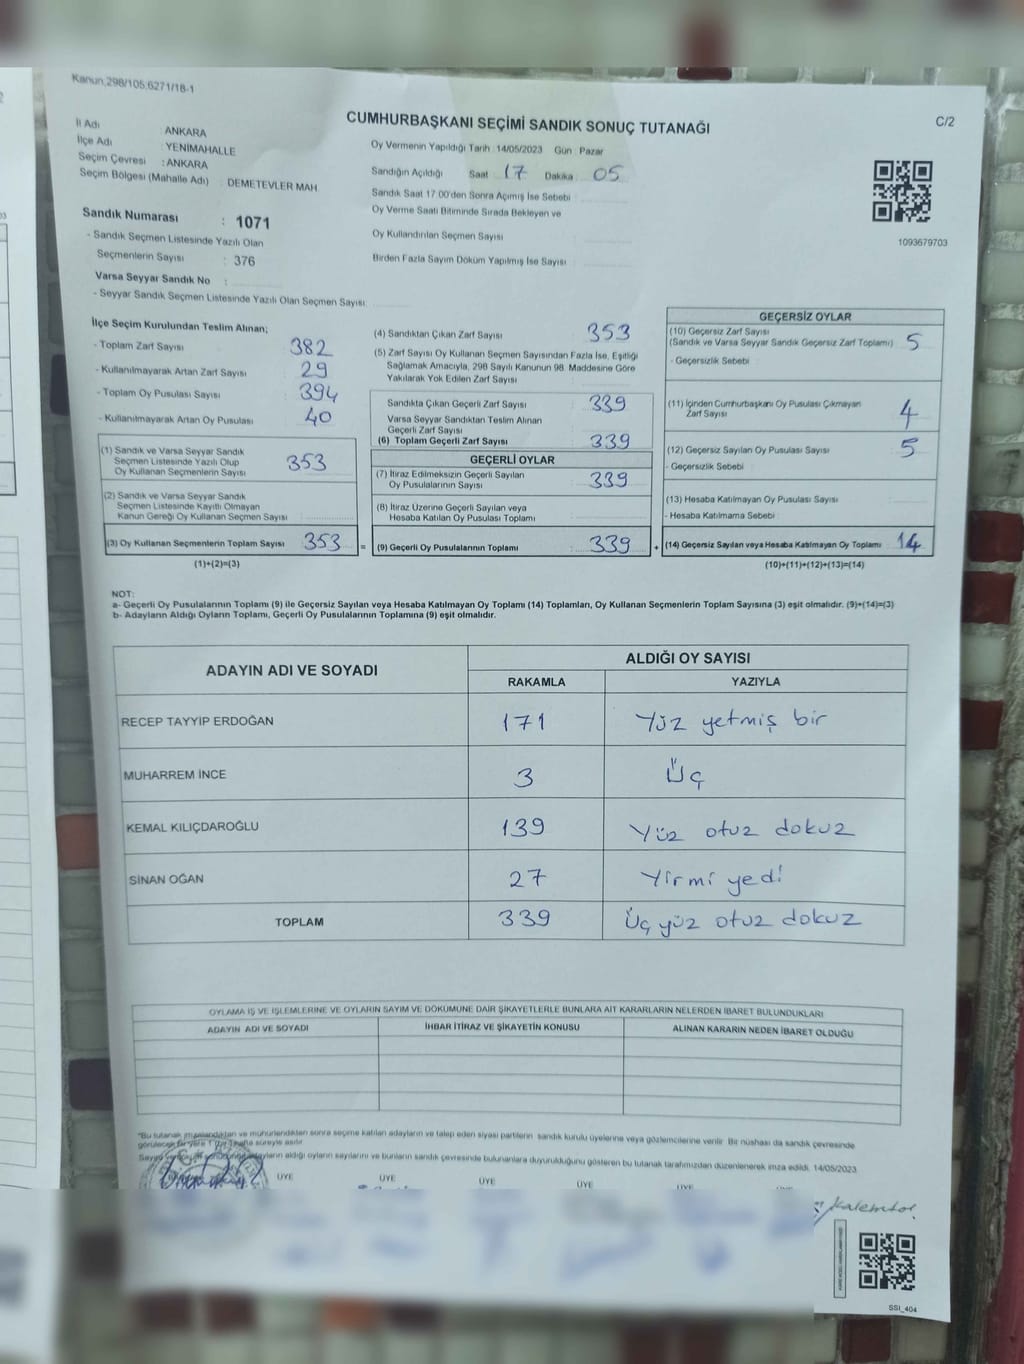 Kanun.298/105,6271/18-1
C/2
CUMHURBAŞKANI SEÇİMİ SANDIK SONUÇ TUTANAĞI
İl Adı : ANKARA
İlçe Adı : YENİMAHALLE
Seçim Çevresi : ANKARA
Seçim Bölgesi (Mahalle Adı) : DEMETEVLER MAH.
Oy Vermenin Yapıldığı Tarih : 14/05/2023 Gün : Pazar
Sandığın Açıldığı Saat 17 Dakika : 05
Sandık Saat 17:00'den Sonra Açımış İse Sebebi :
Oy Verme Saati Bitiminde Sırada Bekleyen ve
Oy Kullandırılan Seçmen Sayısı
Birden Fazla Sayım Döküm Yapılmış İse Sayısı :
1093679703
Sandık Numarası : 1071
- Sandık Seçmen Listesinde Yazılı Olan
Seçmenlerin Sayısı : 376
Varsa Seyyar Sandık No :
- Seyyar Sandık Seçmen Listesinde Yazılı Olan Seçmen Sayısı:
İlçe Seçim Kurulundan Teslim Alınan;
- Toplam Zarf Sayısı 382
- Kullanılmayarak Artan Zarf Sayısı 29
- Toplam Oy Pusulası Sayısı 394
- Kullanılmayarak Artan Oy Pusulası 40
(1) Sandık ve Varsa Seyyar Sandık
Seçmen Listesinde Yazılı Olup
Oy Kullanan Seçmenlerin Sayısı 353
(2) Sandık ve Varsa Seyyar Sandık
Seçmen Listesinde Kayıtlı Olmayan
Kanun Gereği Oy Kullanan Seçmen Sayısı
(3) Oy Kullanan Seçmenlerin Toplam Sayısı 353
(1)+(2)=(3)
(4) Sandıktan Çıkan Zarf Sayısı 353
(5) Zarf Sayısı Oy Kullanan Seçmen Sayısından Fazla İse, Eşitliği
Sağlamak Amacıyla, 298 Sayılı Kanunun 98. Maddesine Göre
Yakılarak Yok Edilen Zarf Sayısı
Sandıkta Çıkan Geçerli Zarf Sayısı 339
Varsa Seyyar Sandıktan Teslim Alınan
Geçerli Zarf Sayısı
(6) Toplam Geçerli Zarf Sayısı 339
GEÇERLİ OYLAR
(7) İtiraz Edilmeksizin Geçerli Sayılan
Oy Pusulalarının Sayısı 339
(8) İtiraz Üzerine Geçerli Sayılan veya
Hesaba Katılan Oy Pusulası Toplamı
= (9) Geçerli Oy Pusulalarının Toplamı 339
GEÇERSİZ OYLAR
(10) Geçersiz Zarf Sayısı
(Sandık ve Varsa Seyyar Sandık Geçersiz Zarf Toplamı) 5
- Geçersizlik Sebebi :
(11) İçinden Cumhurbaşkanı Oy Pusulası Çıkmayan
Zarf Sayısı 4
(12) Geçersiz Sayılan Oy Pusulası Sayısı 5
- Geçersizlik Sebebi
(13) Hesaba Katılmayan Oy Pusulası Sayısı
- Hesaba Katılmama Sebebi
+ (14) Geçersiz Sayılan veya Hesaba Katılmayan Oy Toplamı 14
(10)+(11)+(12)+(13)=(14)
NOT:
a- Geçerli Oy Pusulalarının Toplamı (9) ile Geçersiz Sayılan veya Hesaba Katılmayan Oy Toplamı (14) Toplamları, Oy Kullanan Seçmenlerin Toplam Sayısına (3) eşit olmalıdır. (9)+(14)=(3)
b- Adayların Aldığı Oyların Toplamı, Geçerli Oy Pusulalarının Toplamına (9) eşit olmalıdır.
ADAYIN ADI VE SOYADI
ALDIĞI OY SAYISI
RAKAMLA YAZIYLA
RECEP TAYYİP ERDOĞAN 171 Yüz yetmiş bir
MUHARREM İNCE 3 Üç
KEMAL KILIÇDAROĞLU 139 Yüz otuz dokuz
SİNAN OĞAN 27 Yirmi yedi
TOPLAM 339 Üç yüz otuz dokuz
OYLAMA İŞ VE İŞLEMLERİNE VE OYLARIN SAYIM VE DÖKÜMÜNE DAİR ŞİKAYETLERLE BUNLARA AİT KARARLARIN NELERDEN İBARET BULUNDUKLARI
ADAYIN ADI VE SOYADI İHBAR İTİRAZ VE ŞİKAYETİN KONUSU ALINAN KARARIN NEDEN İBARET OLDUĞU
*Bu tutanak imzalandıktan ve mühürlendikten sonra seçime katılan adayların ve talep eden siyasi partilerin sandık kurulu üyelerine veya gözlemcilerine verilir. Bir nüshası da sandık çevresinde
görülecek bir yere 1 hafta süreyle asılır.
adayların aldığı oyların sayılarını ve bunların sandık çevresinde bulunanlara duyurulduğunu gösteren bu tutanak tarafımızdan düzenlenerek imza edildi. 14/05/2023
ÜYE ÜYE ÜYE ÜYE ÜYE
SSI_404